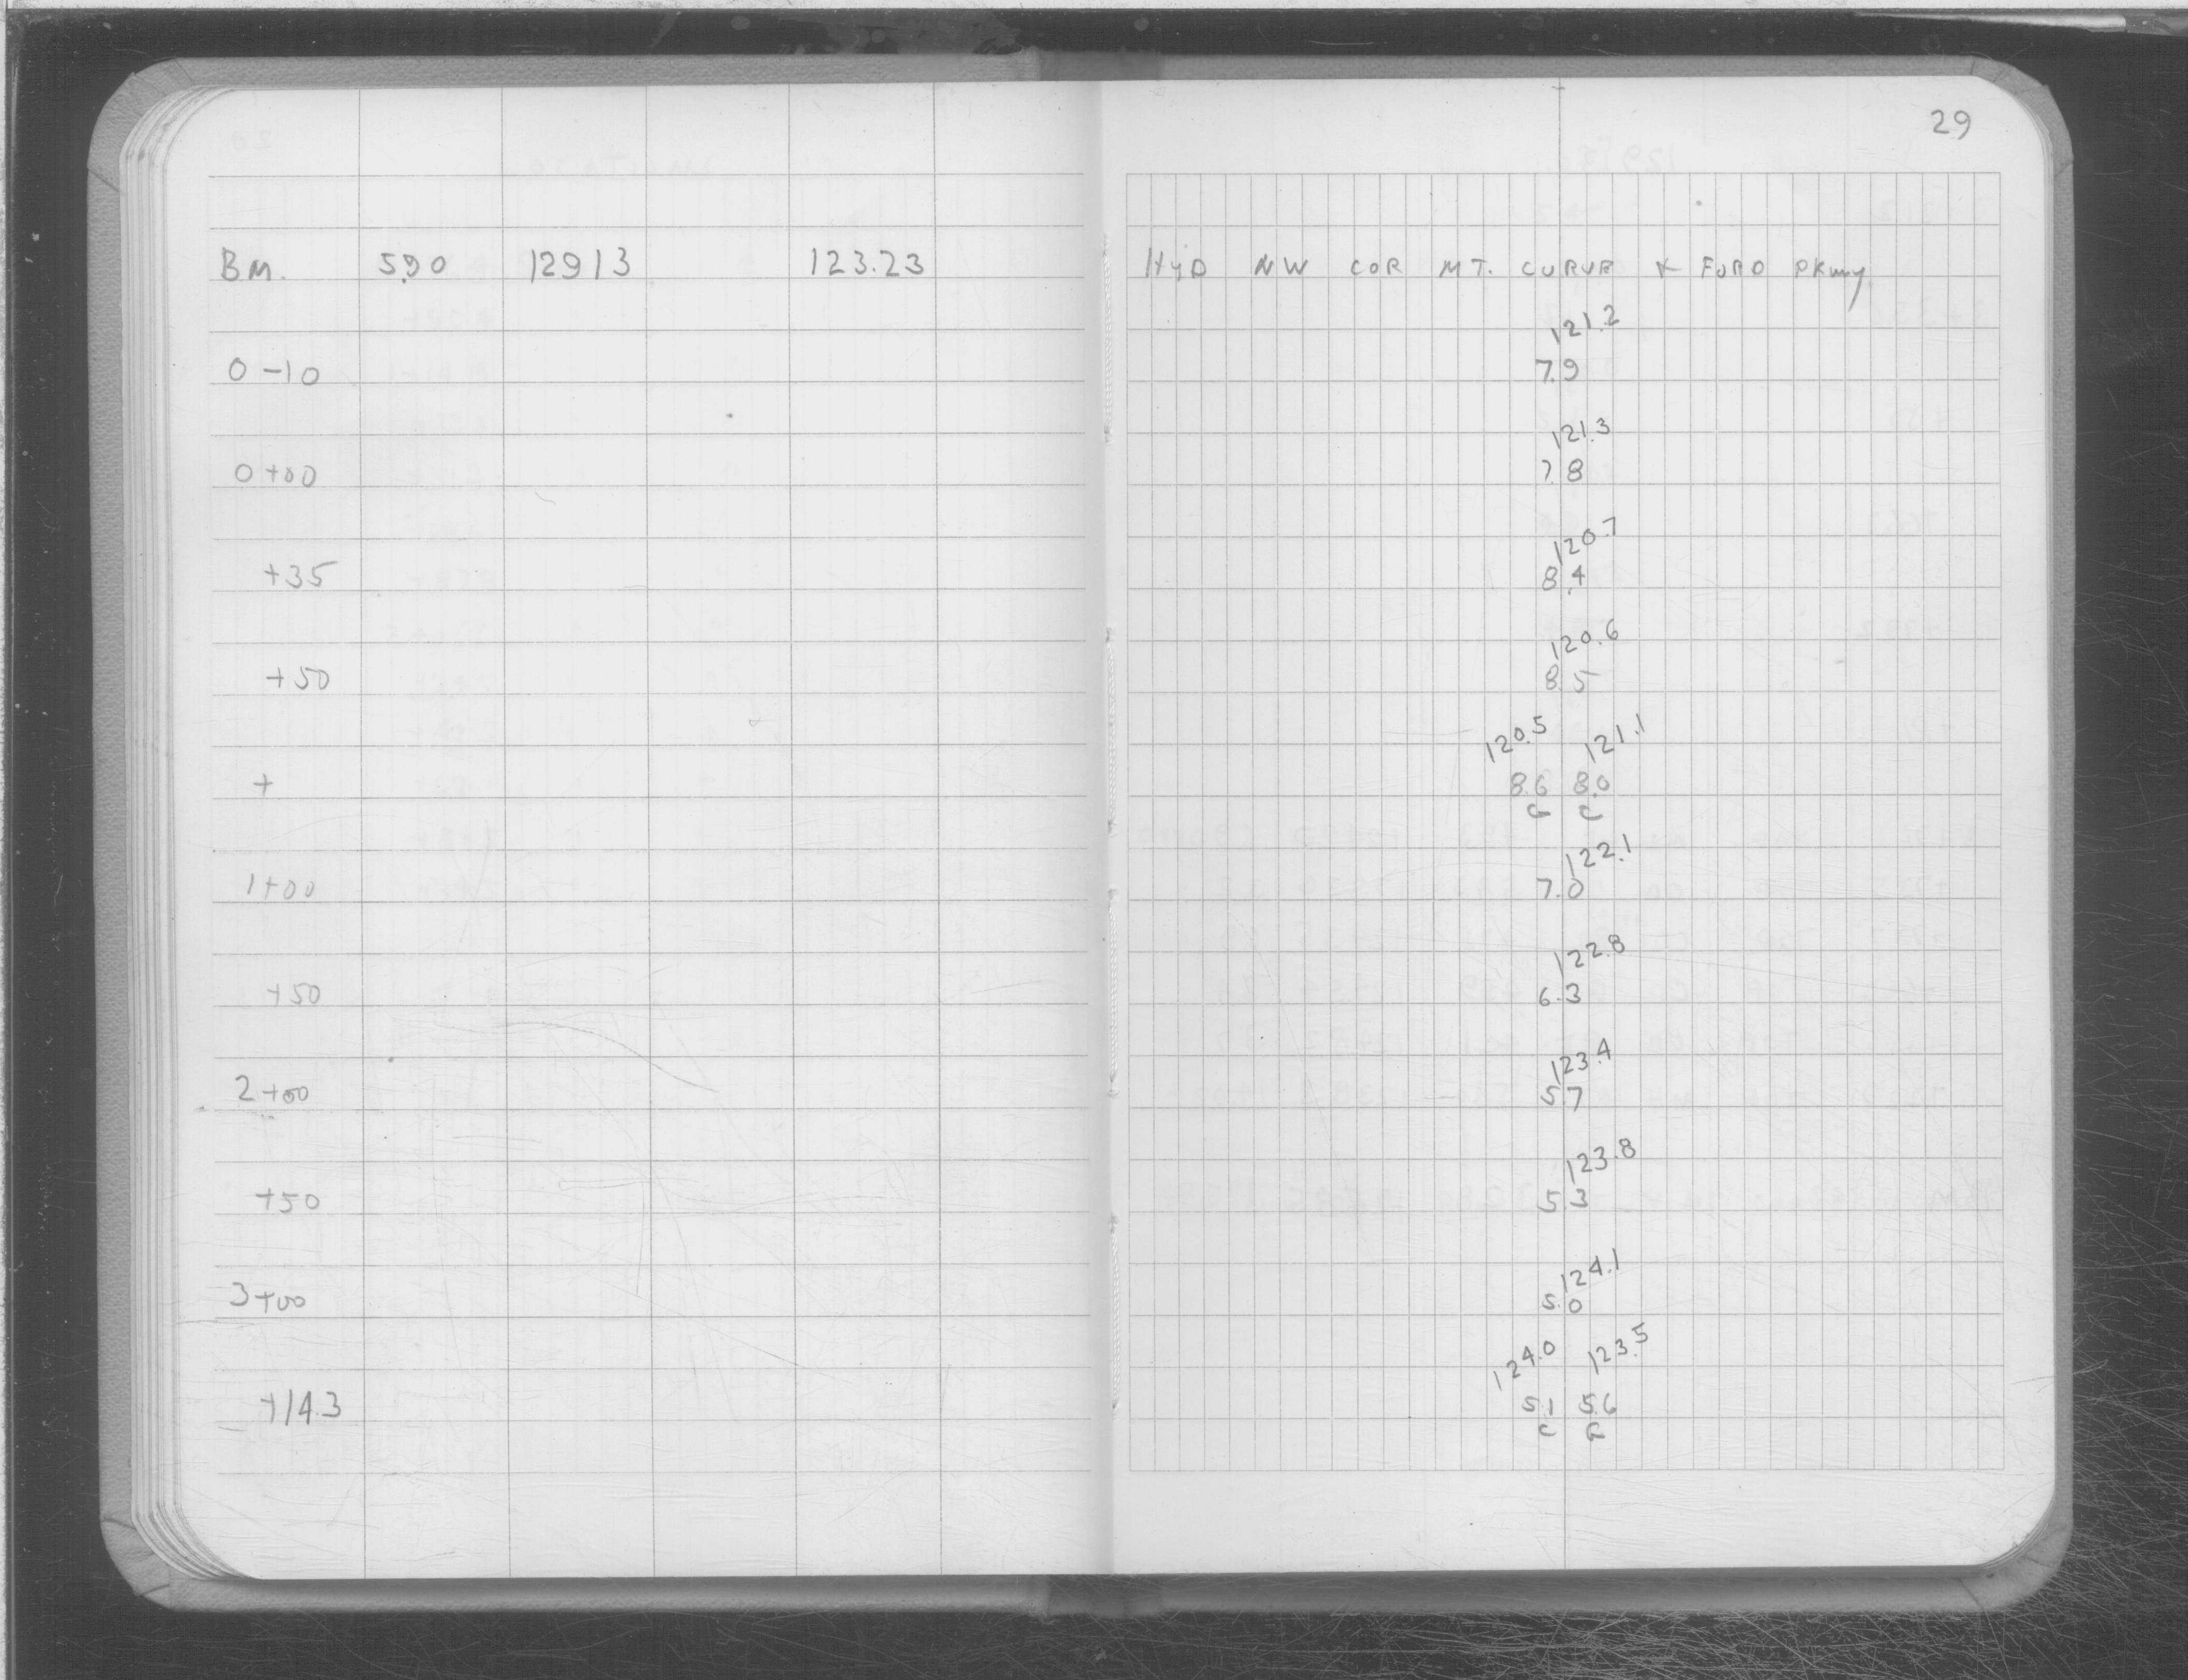 29
BM. 5.90 12913 123.23 HYD NW COR MT. CURVE & FORD PKWY
121.2
0-10 7.9
121.3
0+00 7.8
120.7
+35 8.4
120.6
+50 8.5
120.5 121.1
+ 8.6 8.0
G C
122.1
1+00 7.0
122.8
+50 6.3
123.4
2+00 5.7
123.8
+50 5.3
124.1
3+00 5.0
124.0 123.5
+14.3 5.1 5.6
C G